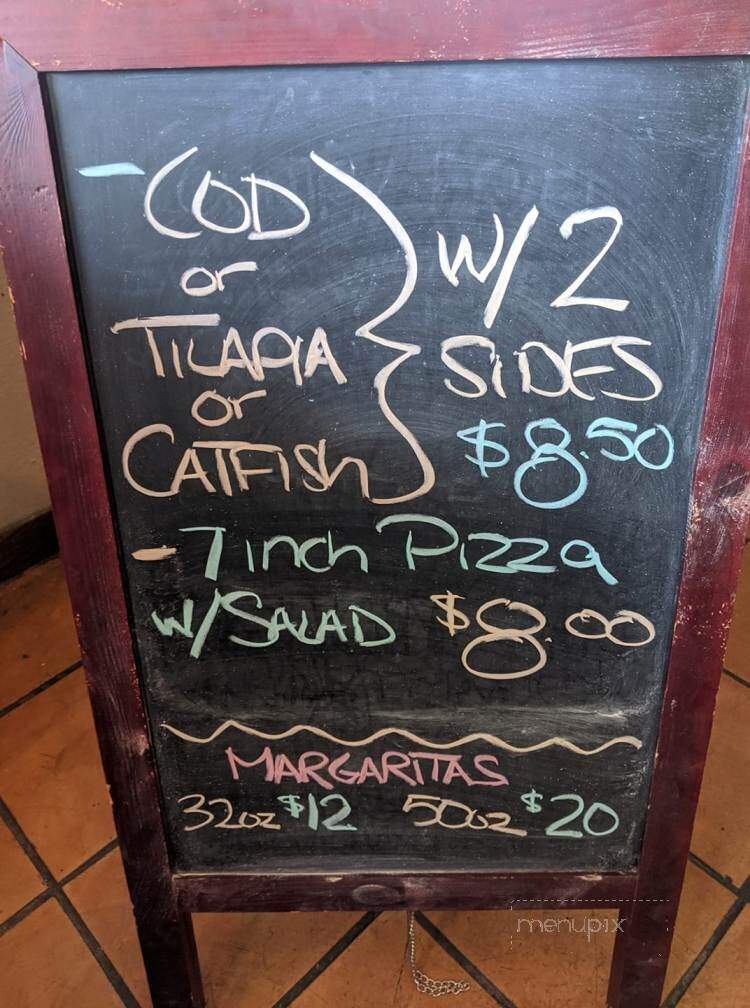 - COD
or
TILAPIA
or
CATFISh
W/2
SIDES
$8.50
- 7 inch Pizza
W/SALAD $8.00
MARGARITAS
32oz $12 50oz $20
menupix